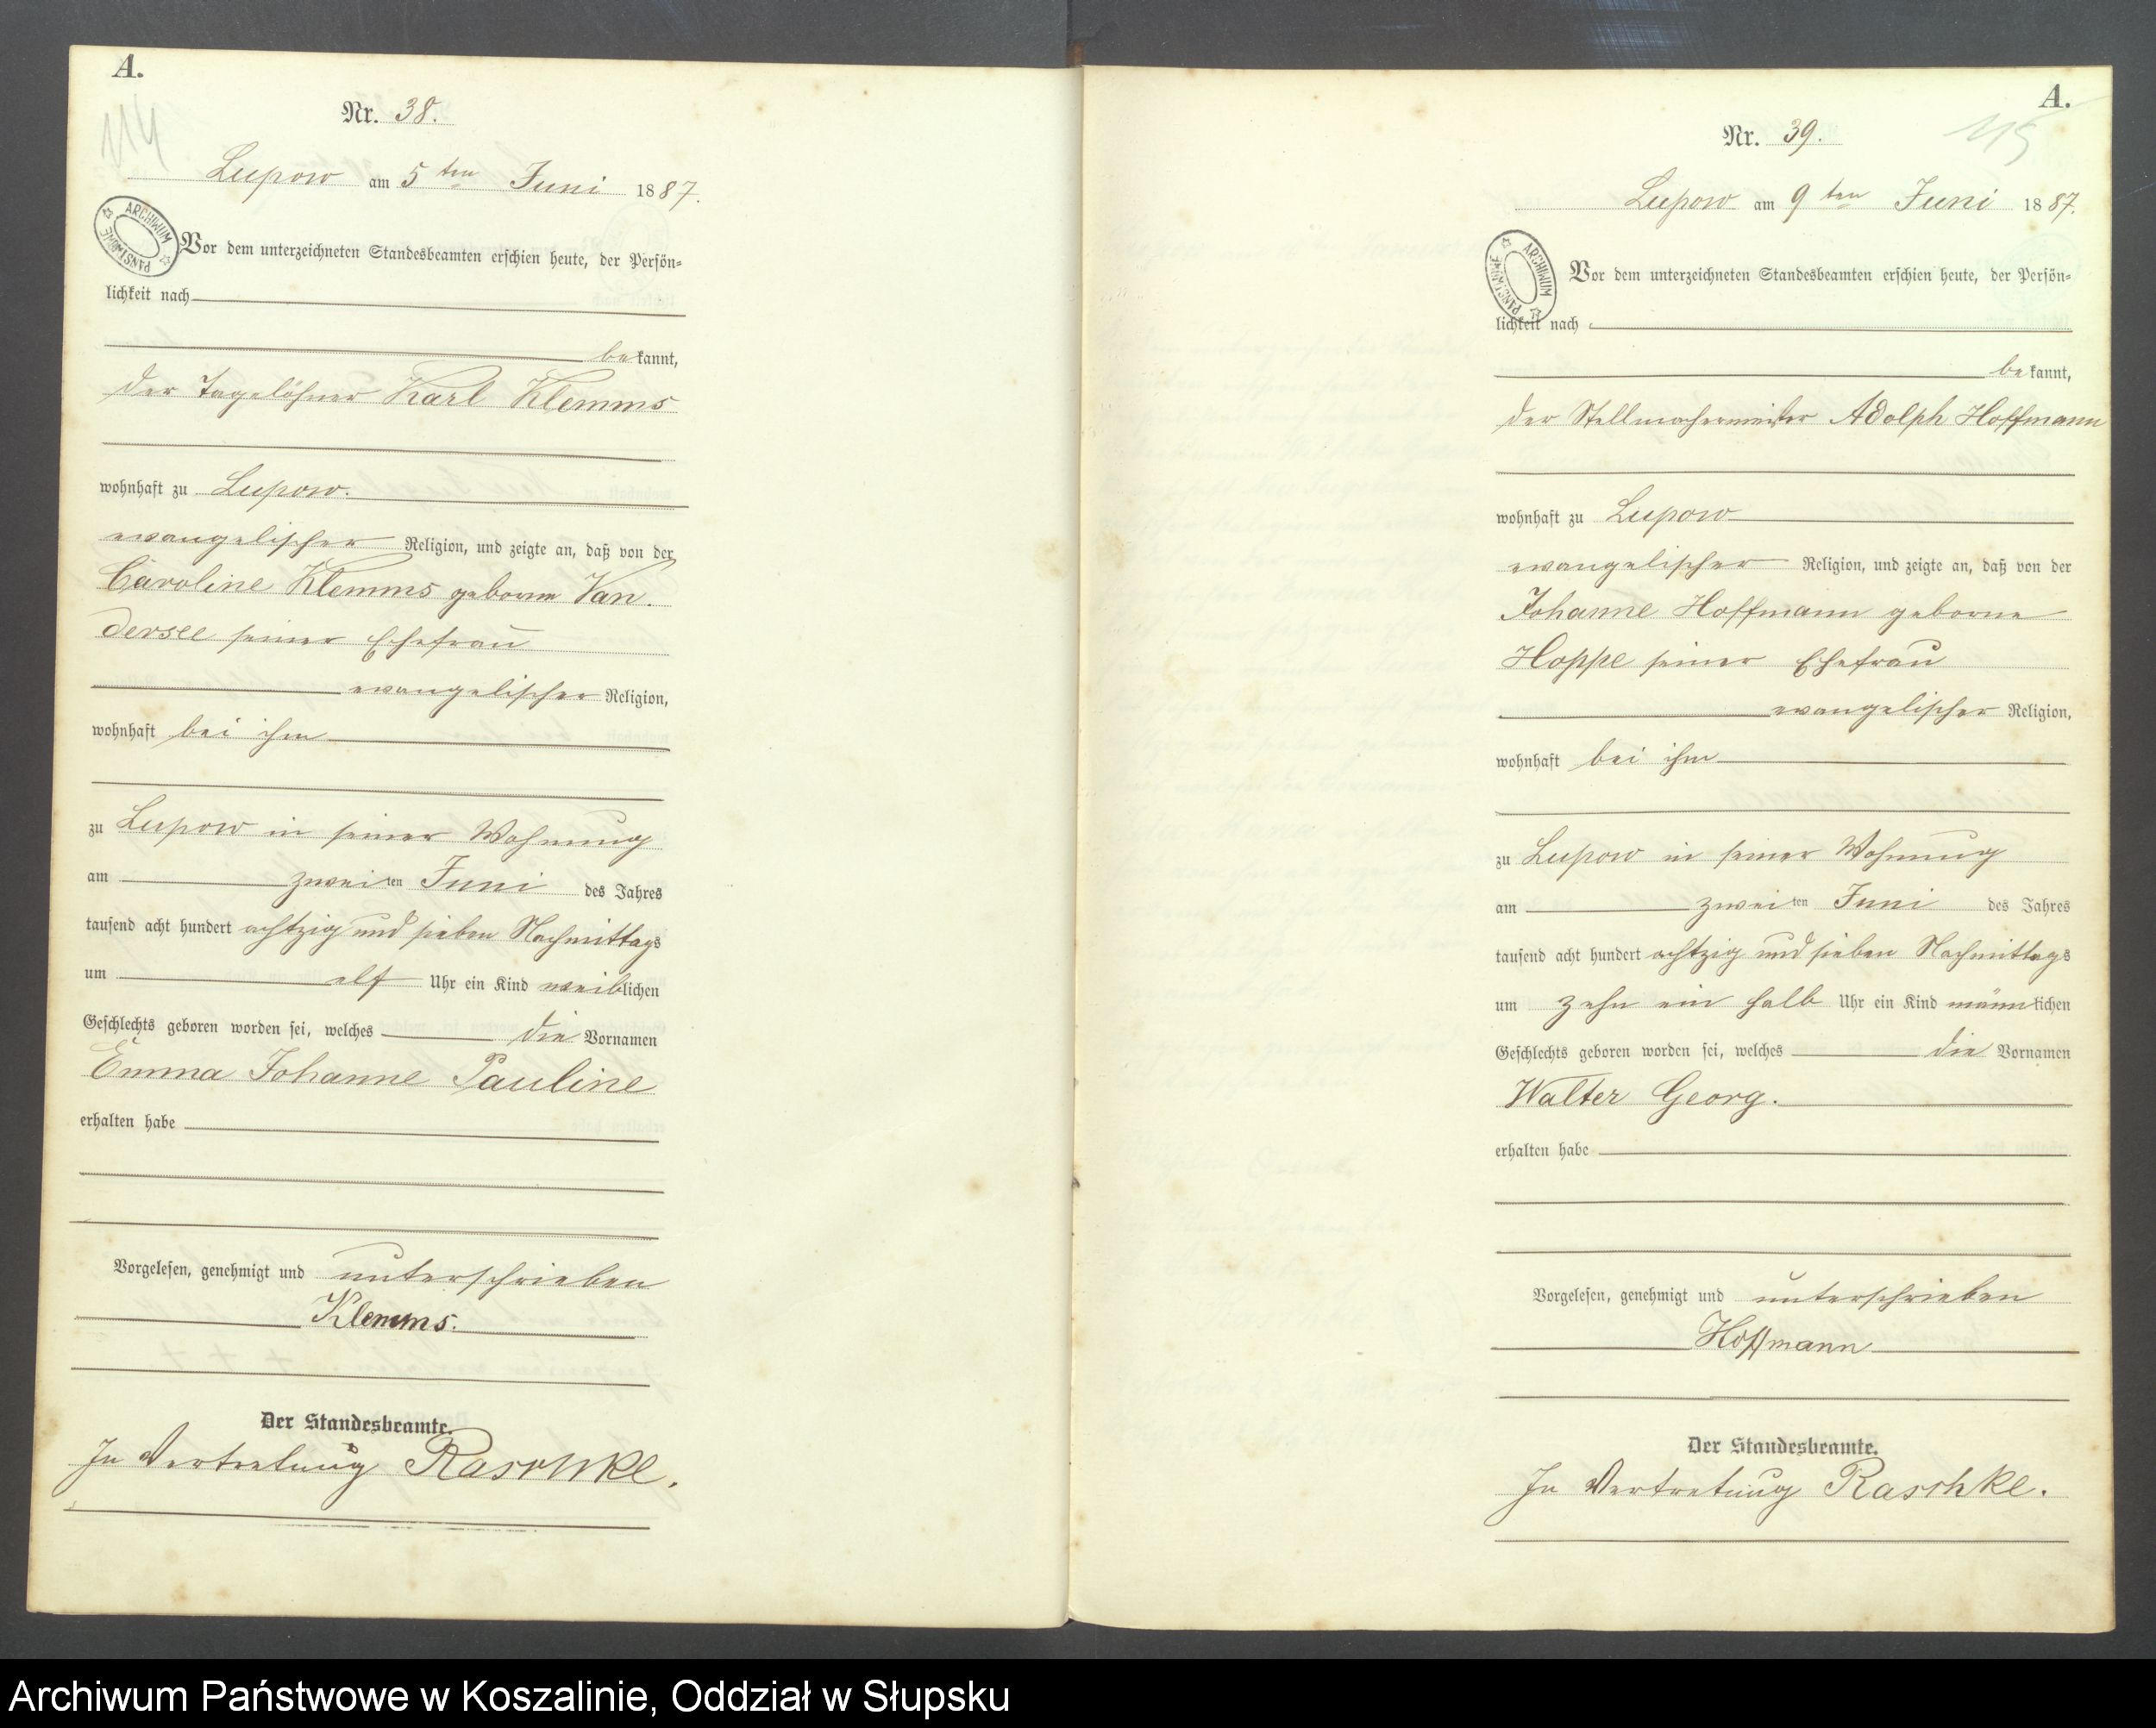 A.
114
Nr. 38.
Lupow am 5ten Juni 1887.
ARCHIWUM PAŃSTWOWE
Vor dem unterzeichneten Standesbeamten erschien heute, der Persön-
lichkeit nach
bekannt,
der Tagelöhner Karl Klemms
wohnhaft zu Lupow.
evangelischer Religion, und zeigte an, daß von der
Caroline Klemms geborne Van.
dersee seiner Ehefrau
evangelischer Religion,
wohnhaft bei ihm
zu Lupow in seiner Wohnung
am zweiten Juni des Jahres
tausend acht hundert achtzig und sieben Nachmittags
um elf Uhr ein Kind weiblichen
Geschlechts geboren worden sei, welches die Vornamen
Emma Johanne Pauline
erhalten habe
Vorgelesen, genehmigt und unterschrieben
Klemms.
Der Standesbeamte.
In Vertretung Raschke.
A.
115
Nr. 39.
Lupow am 9ten Juni 1887.
ARCHIWUM PAŃSTWOWE
Vor dem unterzeichneten Standesbeamten erschien heute, der Persön-
lichkeit nach
bekannt,
der Stellmachermeister Adolph Hoffmann
wohnhaft zu Lupow
evangelischer Religion, und zeigte an, daß von der
Johanne Hoffmann geborne
Hoppe seiner Ehefrau
evangelischer Religion,
wohnhaft bei ihm
zu Lupow in seiner Wohnung
am zweiten Juni des Jahres
tausend acht hundert achtzig und sieben Nachmittags
um zehn ein halb Uhr ein Kind männlichen
Geschlechts geboren worden sei, welches die Vornamen
Walter Georg.
erhalten habe
Vorgelesen, genehmigt und unterschrieben
Hoffmann
Der Standesbeamte.
In Vertretung Raschke.
Archiwum Państwowe w Koszalinie, Oddział w Słupsku